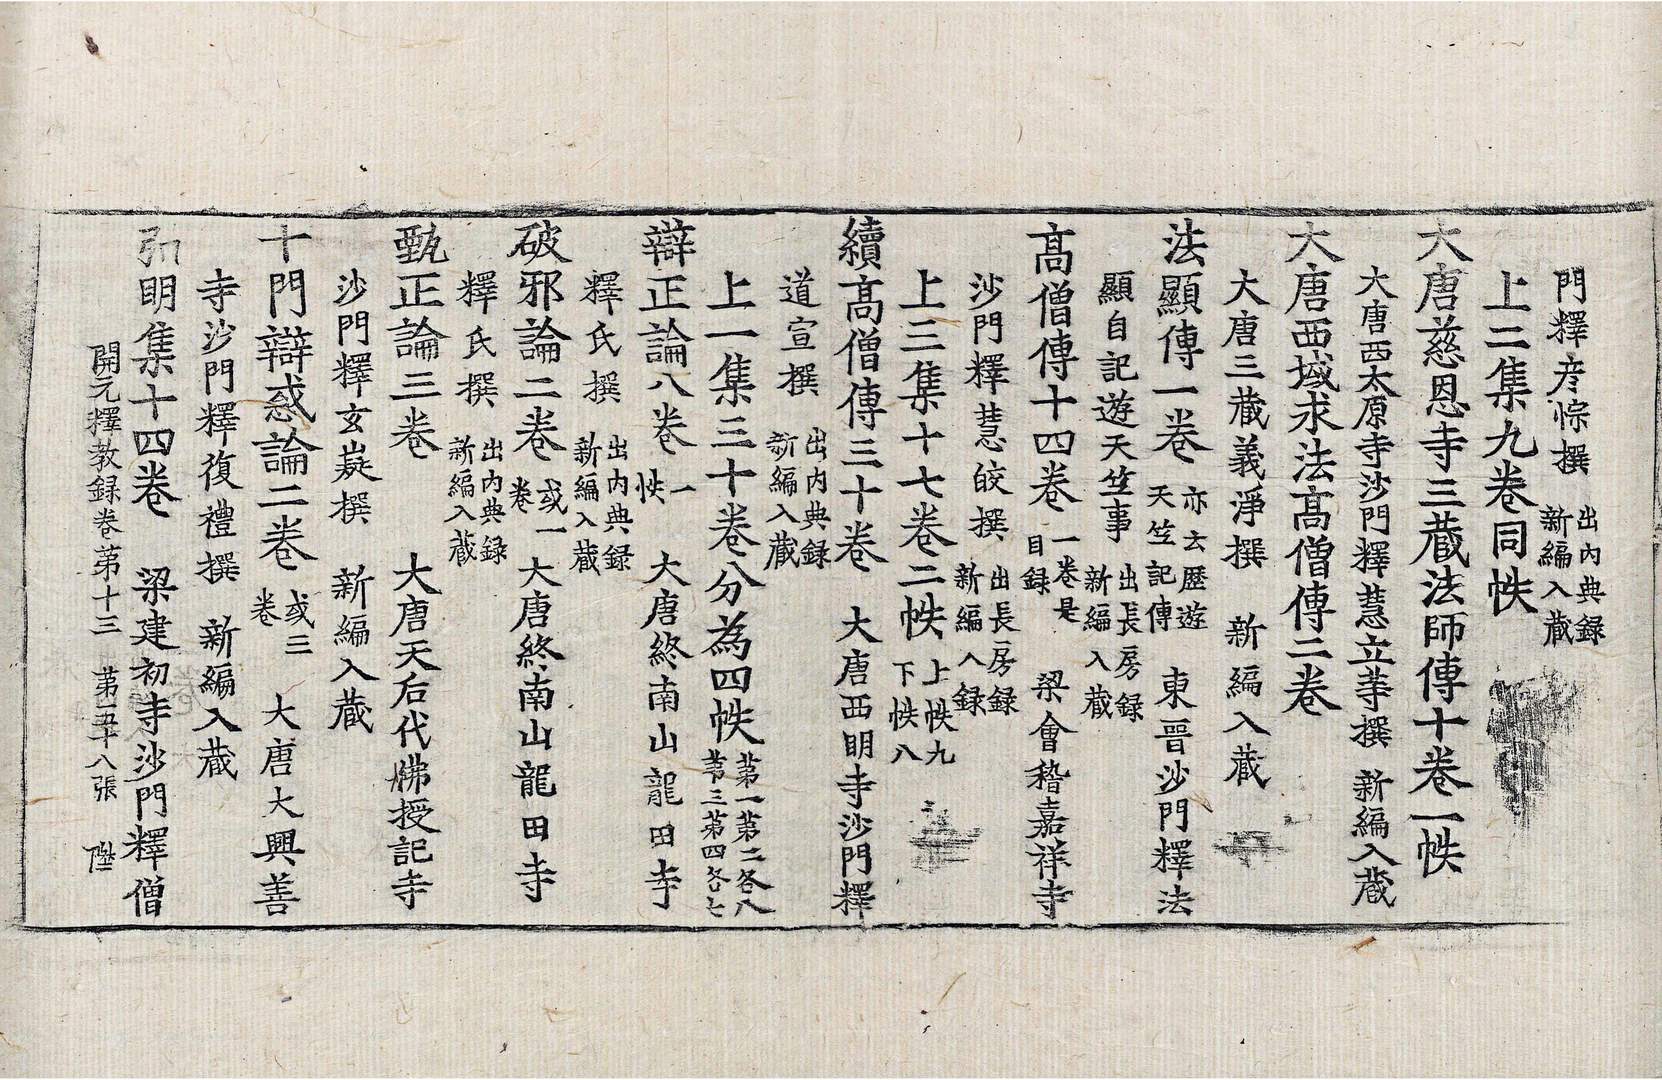 門釋彦悰撰 出內典録新編入藏
上二集九卷同帙
大唐慈恩寺三藏法師傳十卷一帙
大唐西太原寺沙門釋慧立等撰 新編入藏
大唐西域求法高僧傳二卷
大唐三藏義淨撰 新編入藏
法顯傳一卷 亦云歷遊天竺記傳 東晉沙門釋法
顯自記遊天竺事 出長房録新編入藏
高僧傳十四卷 一卷是目録 梁會稽嘉祥寺
沙門釋慧皎撰 出長房録新編入録
上三集十七卷二帙 上帙九下帙八
續高僧傳三十卷 大唐西明寺沙門釋
道宣撰 出內典録新編入藏
上一集三十卷分為四帙 第一第二各八第三第四各七
辯正論八卷 一帙 大唐終南山龍田寺
釋氏撰 出內典録新編入藏
破邪論二卷 或一卷 大唐終南山龍田寺
釋氏撰 出內典録新編入藏
甄正論三卷 大唐天后代佛授記寺
沙門釋玄嶷撰 新編入藏
十門辯惑論二卷 或三卷 大唐大興善
寺沙門釋復禮撰 新編入藏
弘明集十四卷 梁建初寺沙門釋僧
開元釋教録卷第十三 第五十八張 陞